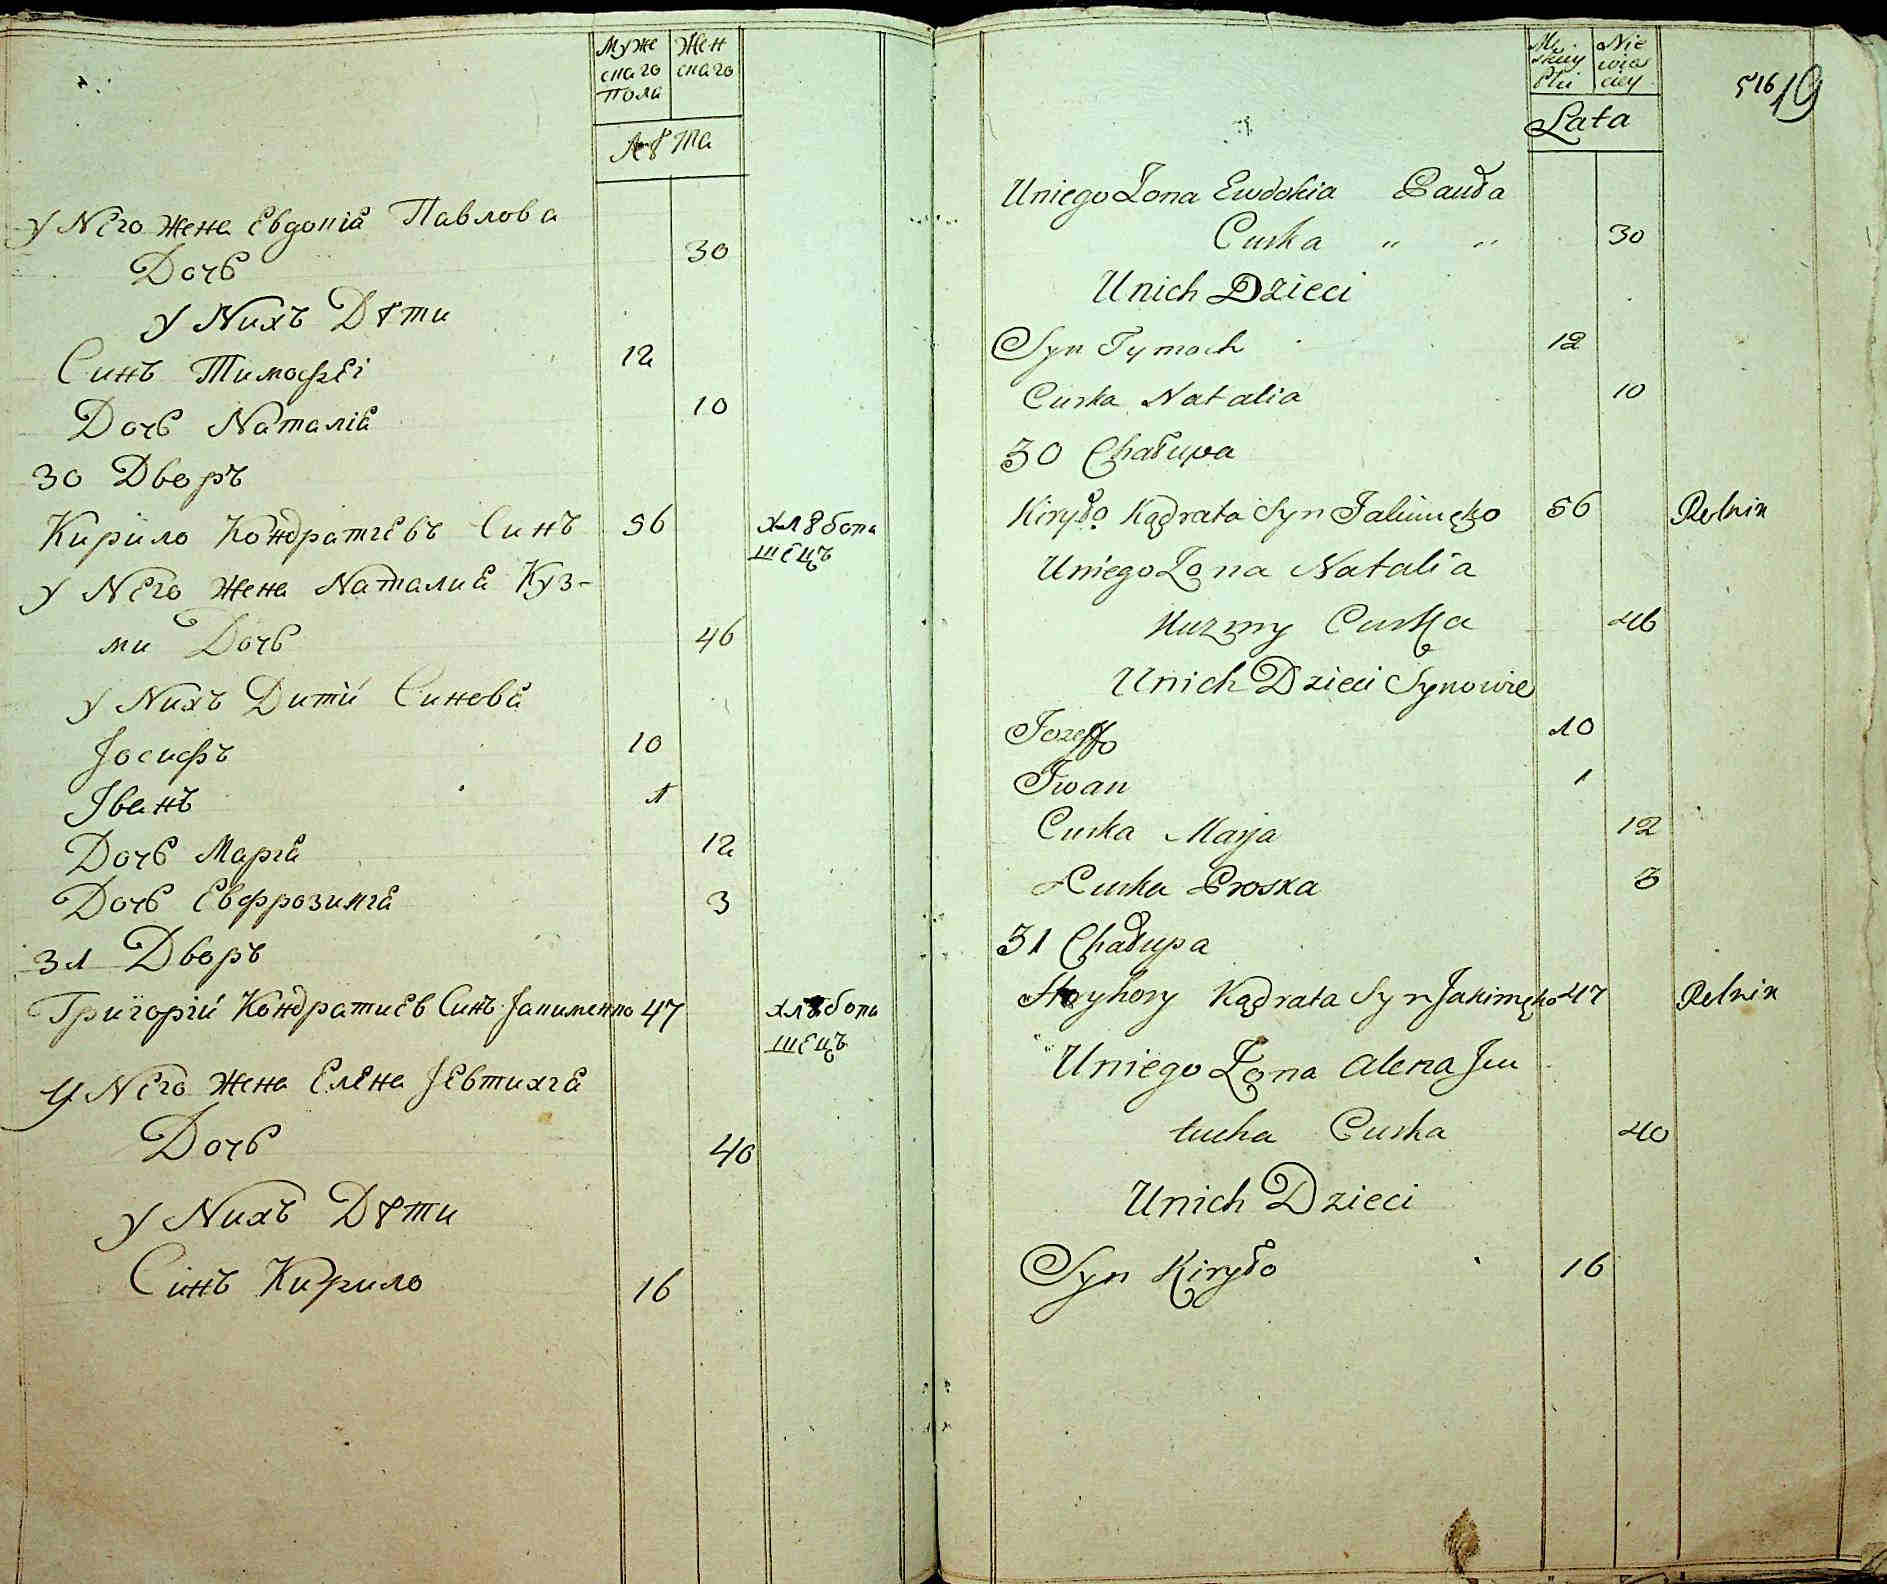 Муже
скаго
пола
Жен
скаго
Лѣта
У Него жена Евдокіа Павлова
Дочь 30
У Нихъ Дѣти
Синъ Тимофеі 12
Дочь Наталіа 10
30 Дворъ
Кирило Кондратіевъ Синъ 56 хлѣбопа
шецъ
У Него жена Наталиа Куз-
ми Дочь 46
У Нихъ Дити Синова
Іосифъ 10
Іванъ 1
Дочь Маріа 12
Дочь Евфрозиніа 3
31 Дворъ
Григорій Кондратиев Синъ Якименко 47 хлѣбопа
шецъ
У Него жена Елена Іевтихіа
Дочь 40
У Нихъ Дѣти
Сінъ Кирило 16
Mę
skiey
Płci
Nie
wias
ciey
Lata
516 19
Uniego Zona Ewdokia Pauła
Curka " " 30
Unich Dzieci
Syn Tymoch 12
Curka Natalia 10
30 Chałupa
Kiryło Kądrata Syn Jakimęko 56 Rolnik
Uniego Zona Natalia
Kuzmy Curka 46
Unich Dzieci Synowie
Jozeff 10
Iwan 1
Curka Marja 12
Curka Proska 3
31 Chałupa
Hryhory Kądrata Syn Jakimęko 47 Rolnik
Uniego Zona Alena Jeu
tucha Curka 40
Unich Dzieci
Syn Kiryło 16